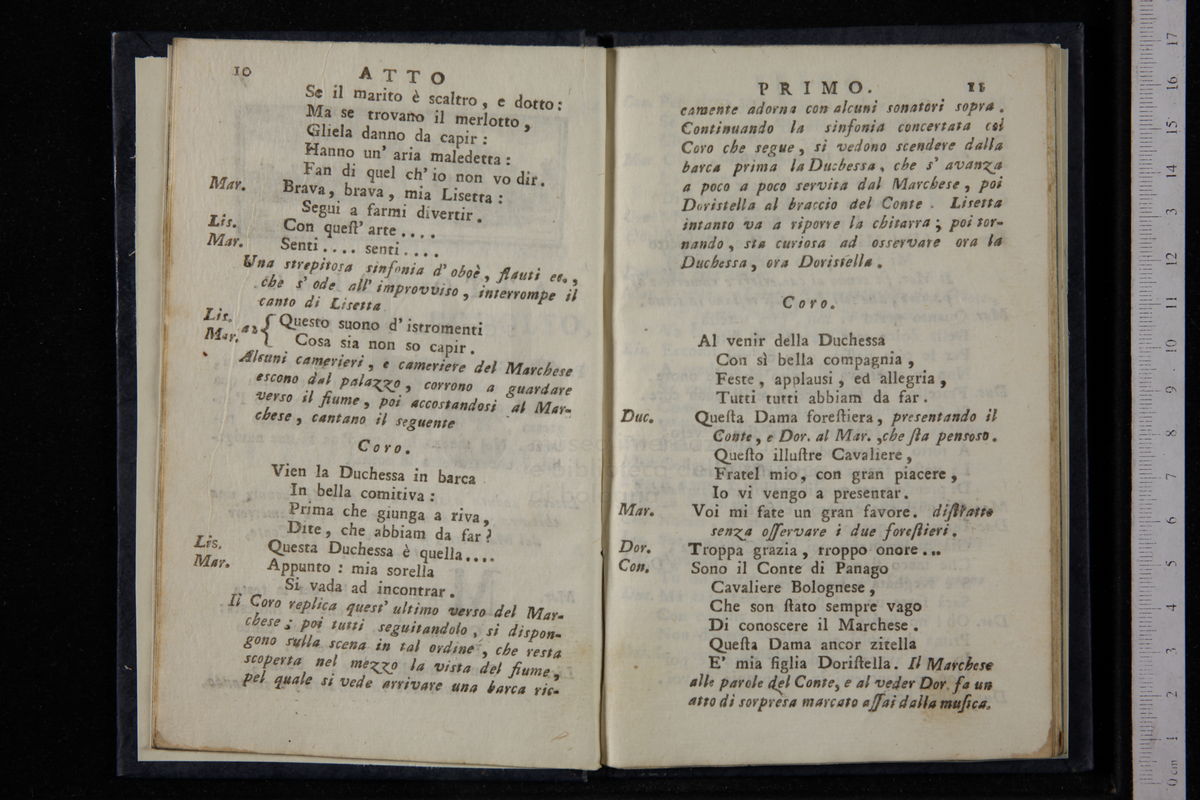 10 ATTO
Se il marito è scaltro, e dotto:
Ma se trovano il merlotto,
Gliela danno da capir:
Hanno un' aria maledetta:
Fan di quel ch' io non vo dir.
Mar. Brava, brava, mia Lisetta:
Segui a farmi divertir.
Lis. Con quest' arte ....
Mar. Senti .... senti ....
Una strepitosa sinfonia d' oboè, flauti ec.,
che s' ode all' improvviso, interrompe il
canto di Lisetta
Lis. Questo suono d' istromenti
Mar. a2 { Cosa sia non so capir.
Alcuni camerieri, e cameriere del Marchese
escono dal palazzo, corrono a guardare
verso il fiume, poi accostandosi al Mar-
chese, cantano il seguente
Coro.
Vien la Duchessa in barca
In bella comitiva:
Prima che giunga a riva,
Dite, che abbiam da far?
Lis. Questa Duchessa è quella....
Mar. Appunto: mia sorella
Si vada ad incontrar.
Il Coro replica quest' ultimo verso del Mar-
chese; poi tutti seguitandolo, si dispon-
gono sulla scena in tal ordine, che resta
scoperta nel mezzo la vista del fiume,
pel quale si vede arrivare una barca ric-
PRIMO. 11
camente adorna con alcuni sonatori sopra.
Continuando la sinfonia concertata col
Coro che segue, si vedono scendere dalla
barca prima la Duchessa, che s' avanza
a poco a poco servita dal Marchese, poi
Doristella al braccio del Conte. Lisetta
intanto va a riporre la chitarra; poi tor-
nando, sta curiosa ad osservare ora la
Duchessa, ora Doristella.
Coro.
Al venir della Duchessa
Con sì bella compagnia,
Feste, applausi, ed allegria,
Tutti tutti abbiam da far.
Duc. Questa Dama forestiera, presentando il
Conte, e Dor. al Mar., che sta pensoso.
Questo illustre Cavaliere,
Fratel mio, con gran piacere,
Io vi vengo a presentar.
Mar. Voi mi fate un gran favore. distratto
senza osservare i due forestieri.
Dor. Troppa grazia, troppo onore...
Con. Sono il Conte di Panago
Cavaliere Bolognese,
Che son stato sempre vago
Di conoscere il Marchese.
Questa Dama ancor zitella
E' mia figlia Doristella. Il Marchese
alle parole del Conte, e al veder Dor. fa un
atto di sorpresa marcato assai dalla musica.
0 cm 1 2 3 4 5 6 7 8 9 10 11 12 13 14 15 16 17